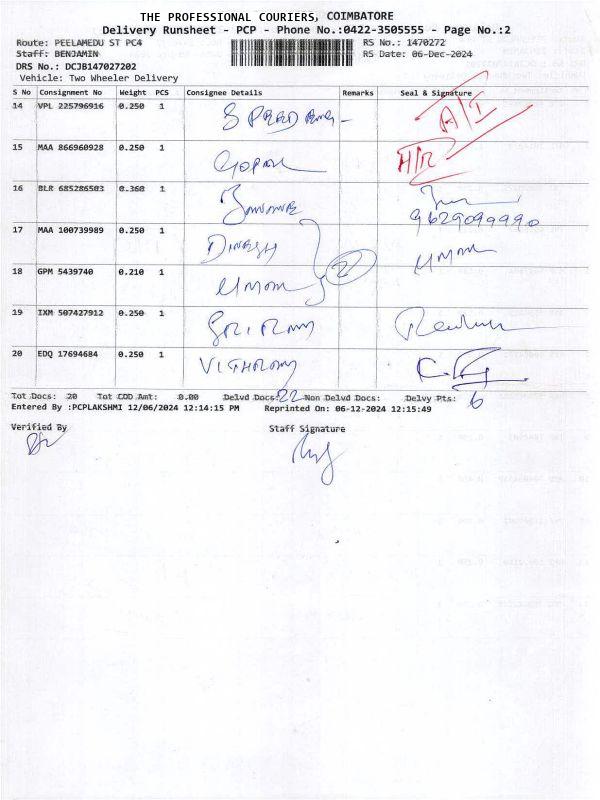 THE PROFESSIONAL COURIERS, COIMBATORE
Delivery Runsheet - PCP - Phone No.:0422-3505555 - Page No.:2
Route: PEELAMEDU ST PC4 RS No.: 1470272
Staff: BENJAMIN RS Date: 06-Dec-2024
DRS No.: DCJB147027202
Vehicle: Two Wheeler Delivery
S No Consignment No Weight PCS Consignee Details Remarks Seal & Signature
14 VPL 225796916 0.250 1
A/I
15 MAA 866960928 0.250 1 GOPAL H/R
16 BLR 685286503 0.360 1
9629099990
17 MAA 100739989 0.250 1 DINESH
18 GPM 5439740 0.210 1
2
19 IXM 507427912 0.250 1 SRIRAM
20 EDQ 17694684 0.250 1
Tot Docs: 20 Tot COD Amt: 0.00 Delvd Docs: 22 Non Delvd Docs: Delvy Pts: 6
Entered By :PCPLAKSHMI 12/06/2024 12:14:15 PM Reprinted On: 06-12-2024 12:15:49
Verified By Staff Signature